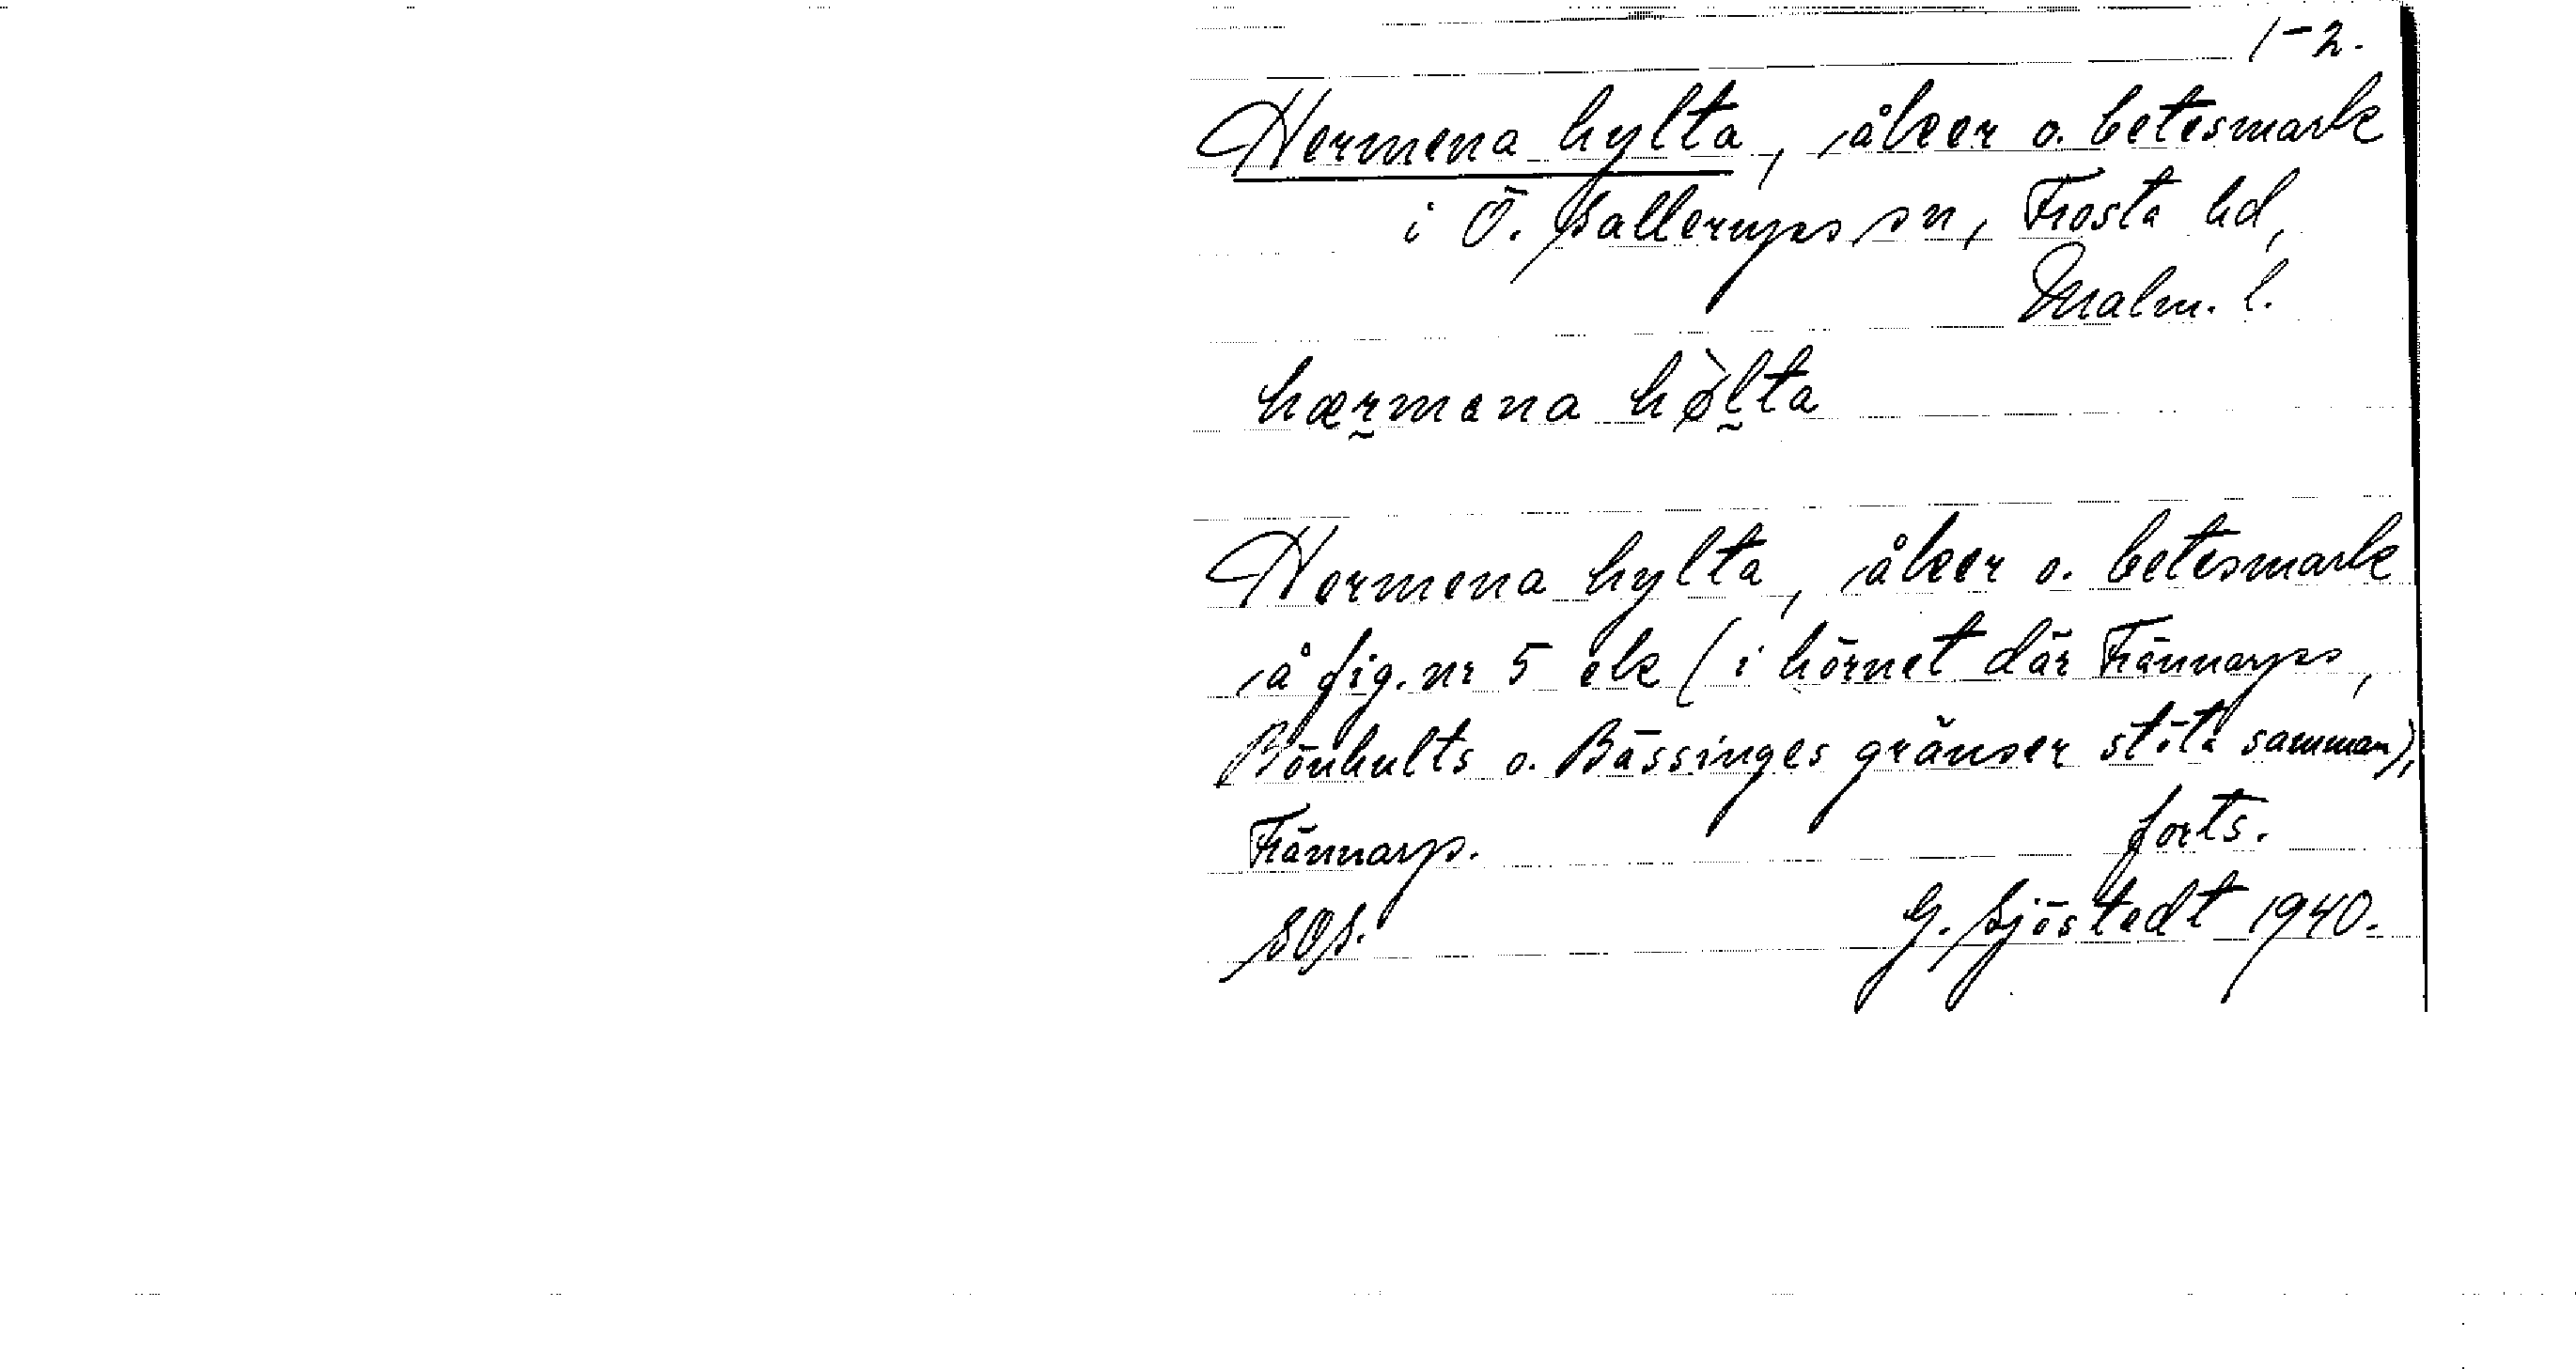 1-2.
Hermena hylta, åker o. betesmark
i Ö. Sallerups sn, Frosta hd,
Malm. l.
hærmena hø̀lta
Hermena hylta, åker o. betesmark
å fig. nr 5 ek (i hörnet där Frännarps,
Bönhults o. Bässinges gränser stöta samman),
Frännarp.
forts.
SOS.
G. Sjöstedt 1940.